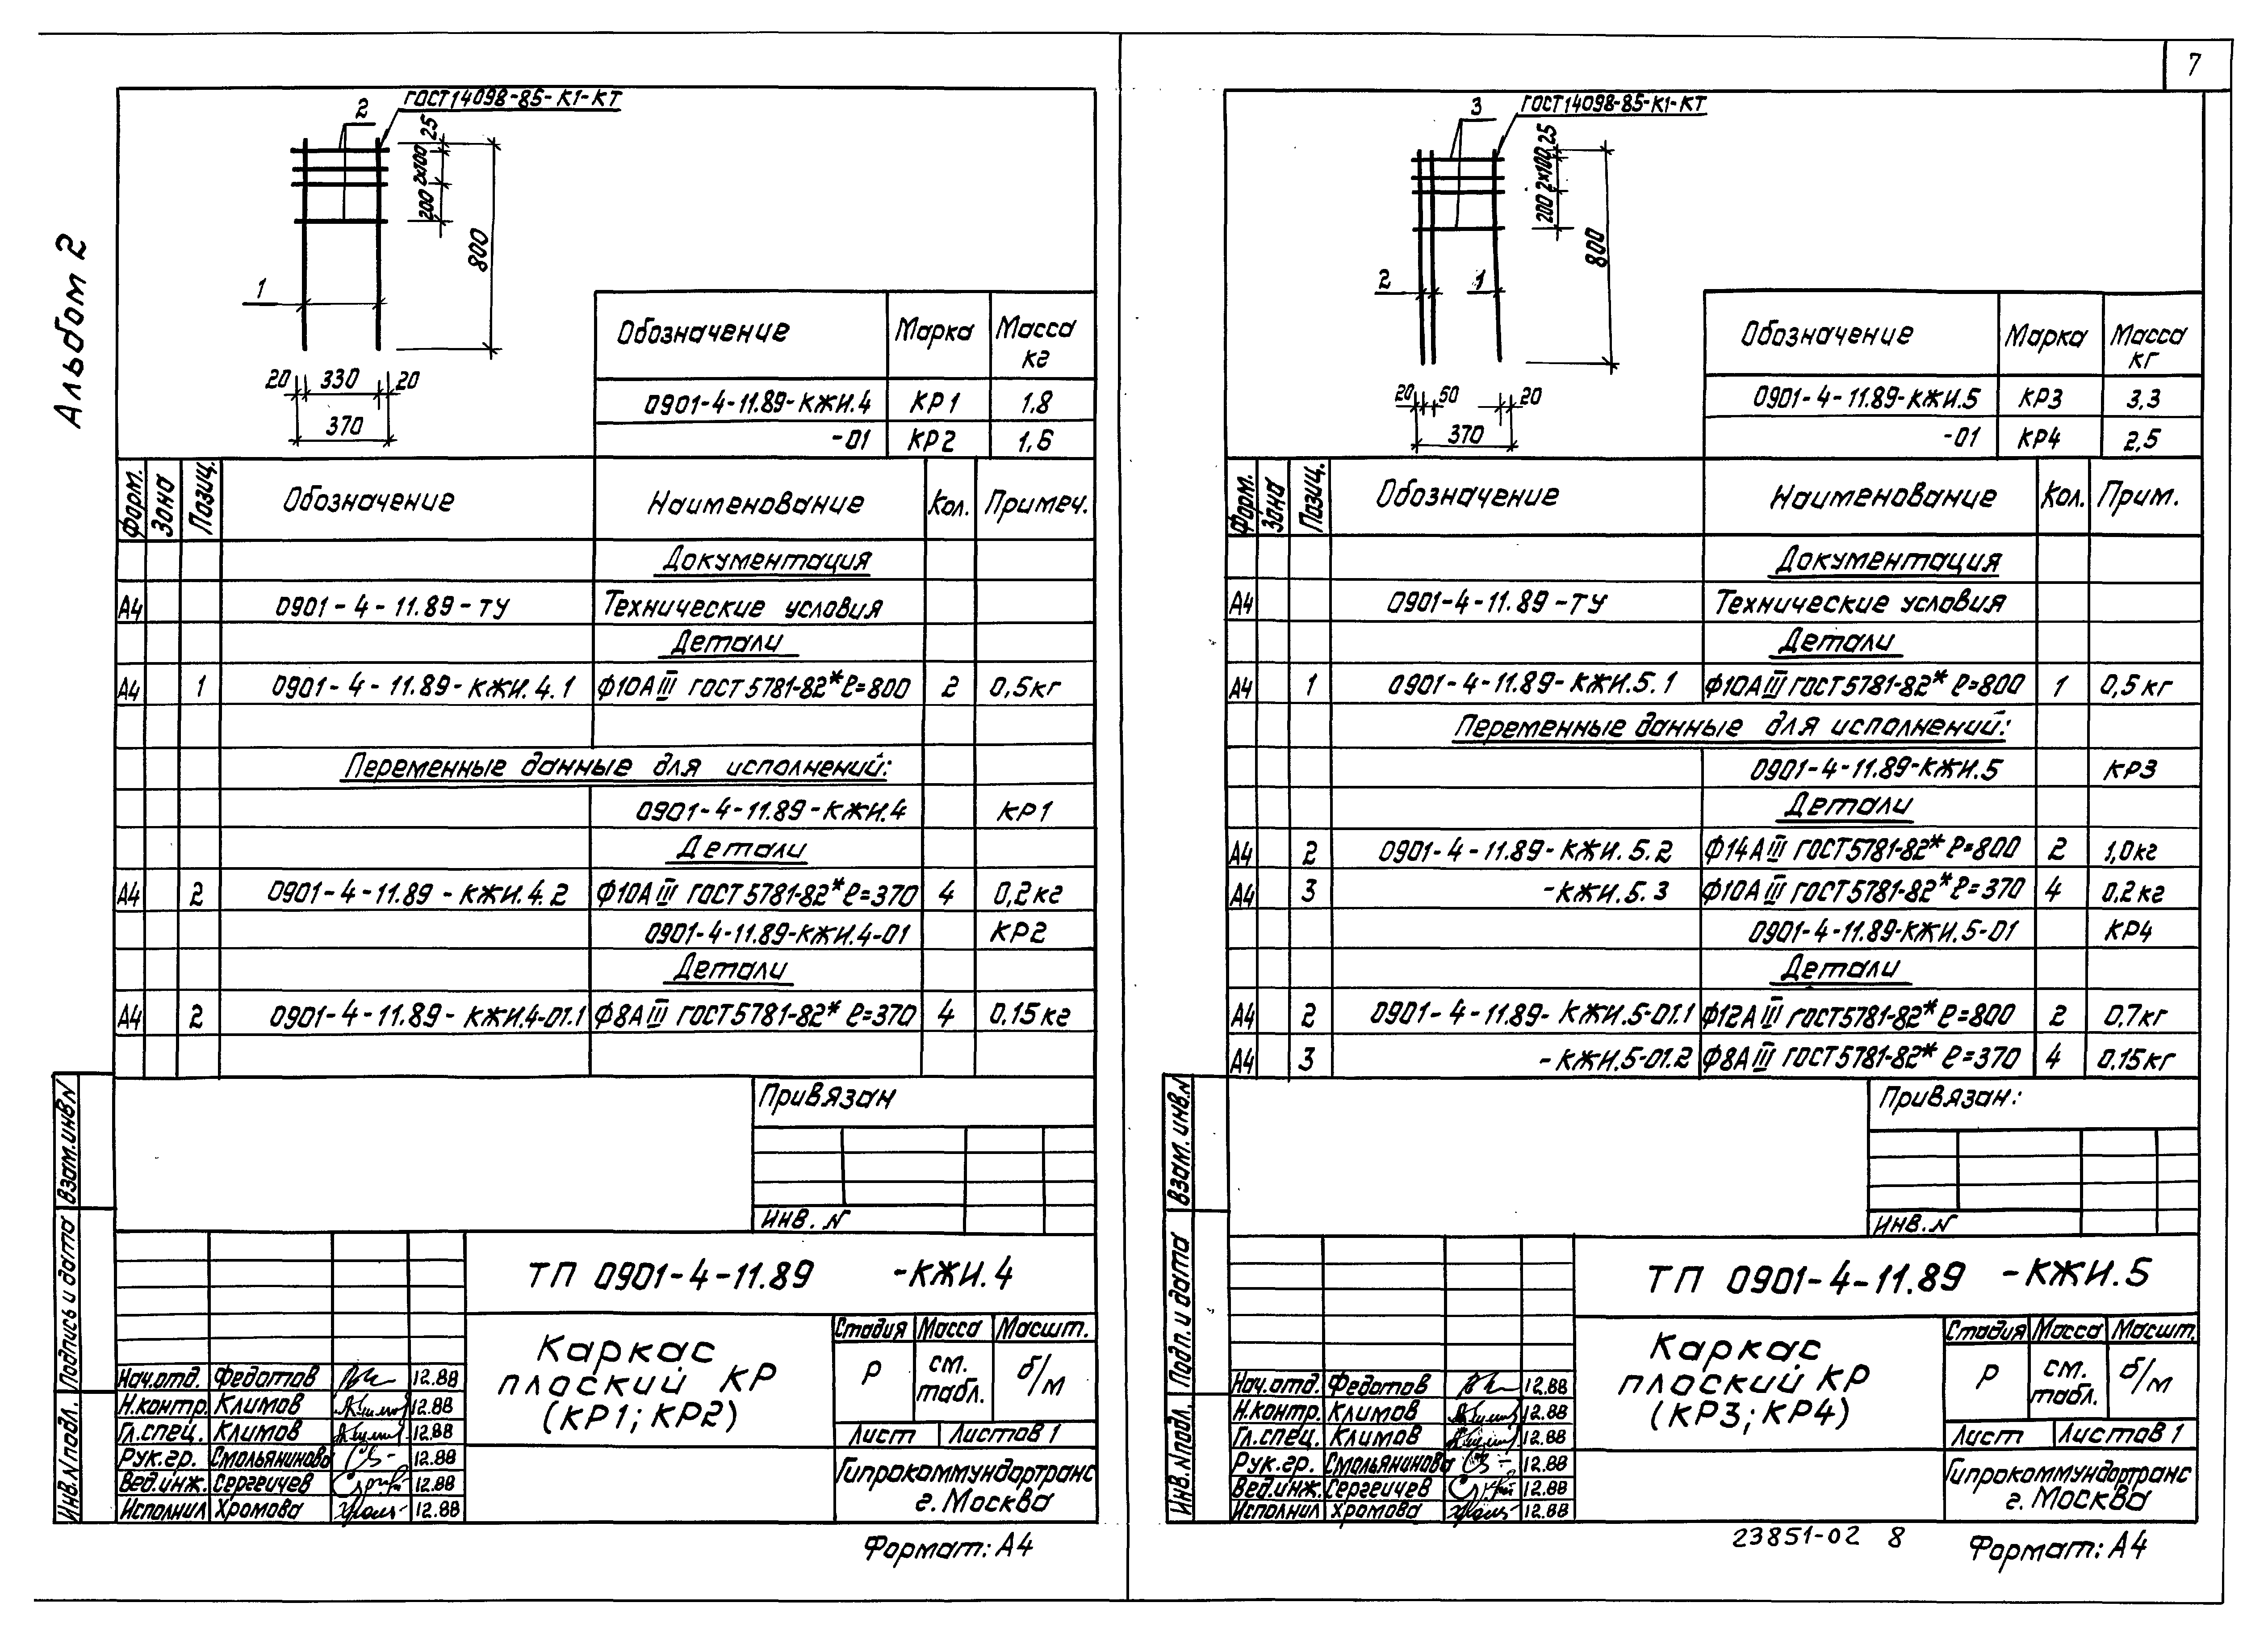 7
Альбом 2
2
ГОСТ14098-85-К1-КТ
25
2х100
200
800
1
20 330 20
370
Обозначение Марка Масса кг
0901-4-11.89-КЖИ.4 КР1 1,8
-01 КР2 1,6
Форм. Зона Позиц. Обозначение Наименование Кол. Примеч.
Документация
А4 0901-4-11.89-ТУ Технические условия
Детали
А4 1 0901-4-11.89-КЖИ.4.1 Ф10АIII ГОСТ5781-82* ℓ=800 2 0,5кг
Переменные данные для исполнений:
0901-4-11.89-КЖИ.4 КР1
Детали
А4 2 0901-4-11.89-КЖИ.4.2 Ф10АIII ГОСТ5781-82* ℓ=370 4 0,2кг
0901-4-11.89-КЖИ.4-01 КР2
Детали
А4 2 0901-4-11.89-КЖИ.4-01.1 Ф8АIII ГОСТ5781-82* ℓ=370 4 0,15кг
Привязан
Инв. N
Взам.инв N
Подпись и дата
Инв.N подл.
ТП 0901-4-11.89 -КЖИ.4
Каркас
плоский КР
(КР1; КР2)
Стадия Масса Масшт.
Р см. табл. б/м
Лист Листов 1
Гипрокоммундортранс
г. Москва
Нач.отд. Федотов 12.88
Н.контр. Климов 12.88
Гл.спец. Климов 12.88
Рук.гр. Смольянинова 12.88
Вед.инж. Сергеичев 12.88
Исполнил Хромова 12.88
Формат: А4
3
ГОСТ14098-85-К1-КТ
25
2х100
200
800
2 1
20 50 20
370
Обозначение Марка Масса кг
0901-4-11.89-КЖИ.5 КР3 3,3
-01 КР4 2,5
Форм. Зона Позиц. Обозначение Наименование Кол. Прим.
Документация
А4 0901-4-11.89-ТУ Технические условия
Детали
А4 1 0901-4-11.89-КЖИ.5.1 Ф10АIII ГОСТ5781-82* ℓ=800 1 0,5кг
Переменные данные для исполнений:
0901-4-11.89-КЖИ.5 КР3
Детали
А4 2 0901-4-11.89-КЖИ.5.2 Ф14АIII ГОСТ5781-82* ℓ=800 2 1,0кг
А4 3 -КЖИ.5.3 Ф10АIII ГОСТ5781-82* ℓ=370 4 0,2кг
0901-4-11.89-КЖИ.5-01 КР4
Детали
А4 2 0901-4-11.89-КЖИ.5-01.1 Ф12АIII ГОСТ5781-82* ℓ=800 2 0,7кг
А4 3 -КЖИ.5-01.2 Ф8АIII ГОСТ5781-82* ℓ=370 4 0,15кг
Привязан:
Инв.N
Взам.инв.N
Подп. и дата
Инв.N подл.
ТП 0901-4-11.89 -КЖИ.5
Каркас
плоский КР
(КР3; КР4)
Стадия Масса Масшт.
Р см. табл. б/м
Лист Листов 1
Гипрокоммундортранс
г. Москва
Нач.отд. Федотов 12.88
Н.контр. Климов 12.88
Гл.спец. Климов 12.88
Рук.гр. Смольянинова 12.88
Вед.инж. Сергеичев 12.88
Исполнил Хромова 12.88
23851-02 8
Формат: А4